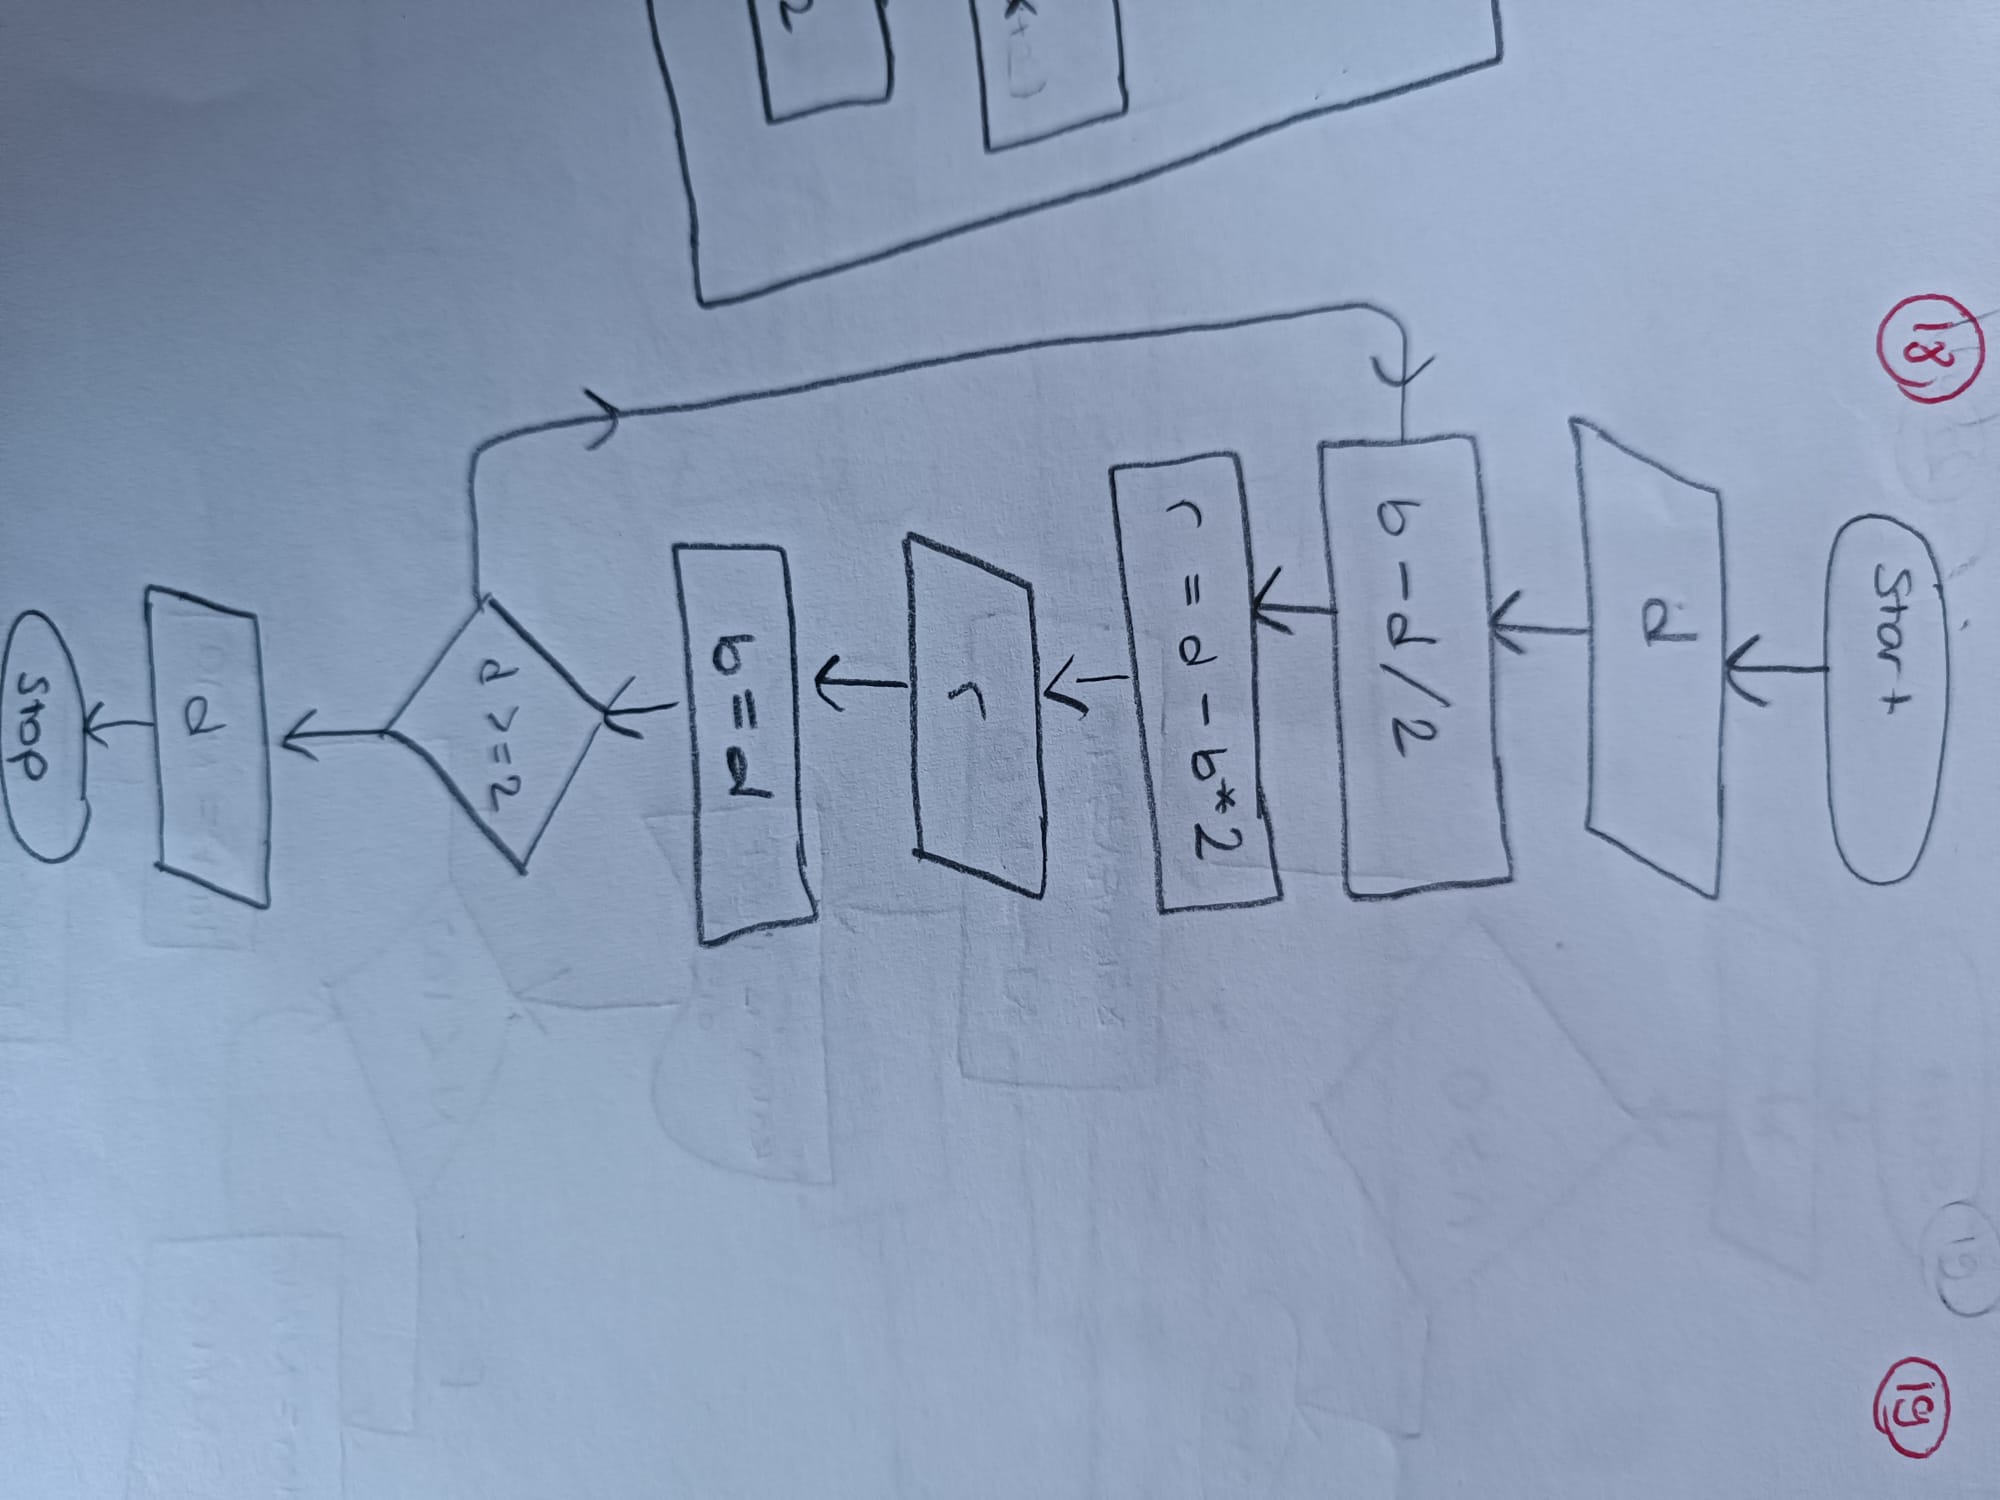 18
Start
d
b - d/2
r = d - b*2
r
b = d
d >= 2
d
Stop
19
2